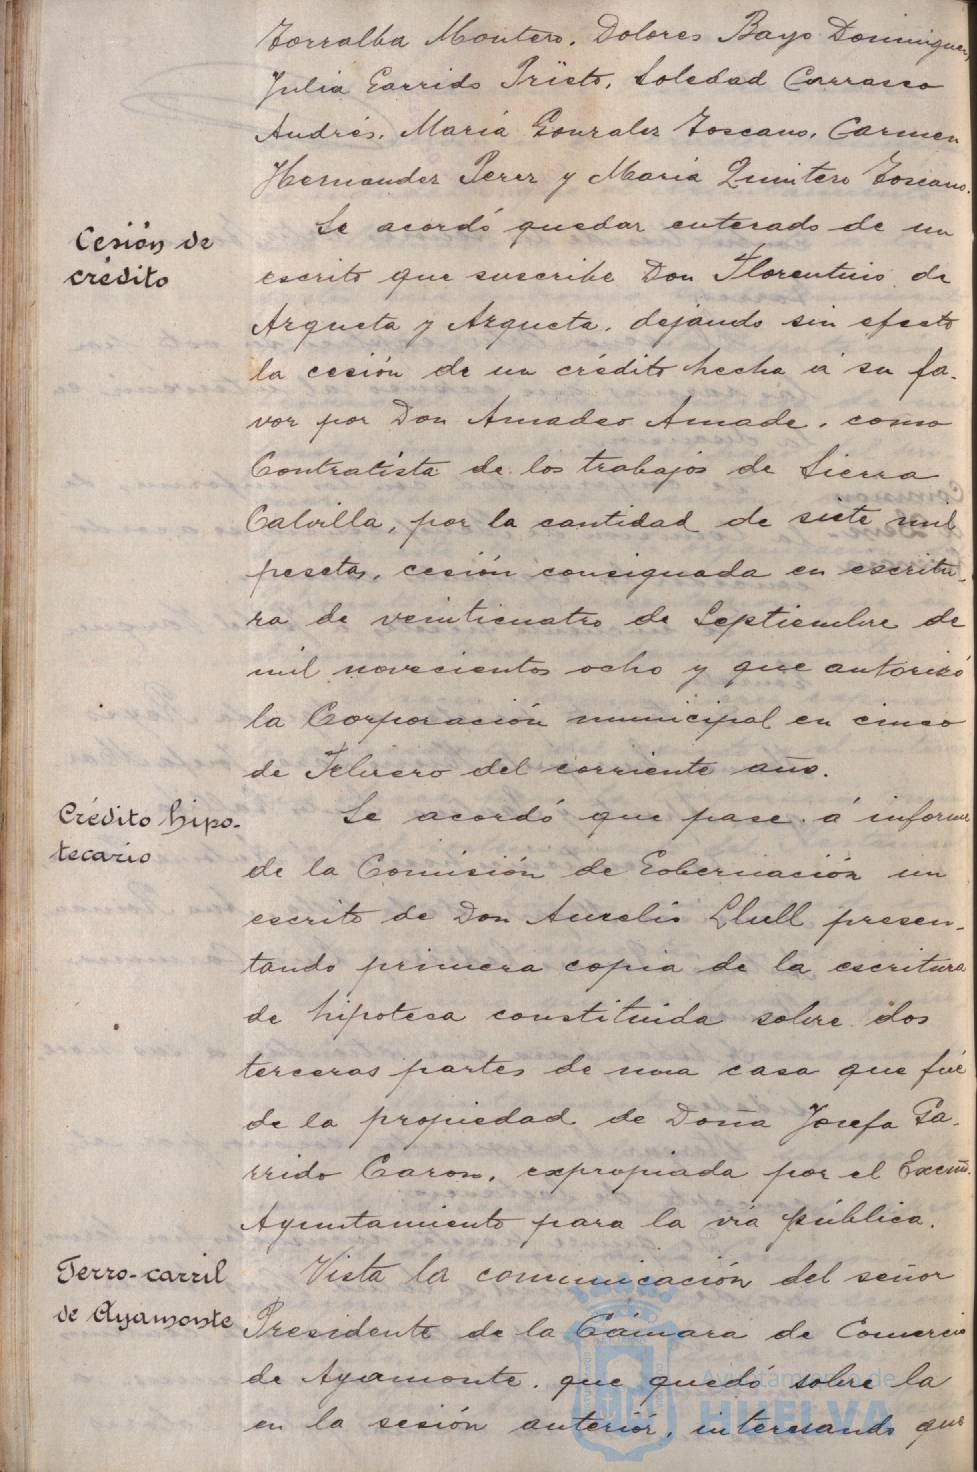 Torralba Montero, Dolores Bayo Dominguez,
Julia Garrido Prieto, Soledad Carrasco
Andrés, María Gonzalez Toscano, Carmen
Hernandez Perez y María Quintero Toscano.
Cesión de
crédito
Se acordó quedar enterado de un
escrito que suscribe Don Florentino de
Azqueta y Azqueta, dejando sin efecto
la cesión de un crédito hecha á su fa-
vor por Don Amadeo Amade, como
Contratista de los trabajos de Sierra
Calvilla, por la cantidad de siete mil
pesetas, cesión consignada en escritu-
ra de veinticuatro de Septiembre de
mil novecientos ocho y que autorizó
la Corporación municipal en cinco
de Febrero del corriente año.
Crédito hipo-
tecario
Se acordó que pase á informe
de la Comisión de Gobernación un
escrito de Don Aurelio Llull presen-
tando primera copia de la escritura
de hipoteca constituida sobre dos
terceras partes de una casa que fué
de la propiedad de Doña Josefa Ga-
rrido Caron, expropiada por el Excmo.
Ayuntamiento para la vía pública.
Ferro-carril
de Ayamonte
Vista la comunicación del señor
Presidente de la Cámara de Comercio
de Ayamonte, que quedó sobre la
en la sesión anterior, interesando que
Ayuntamiento de
HUELVA